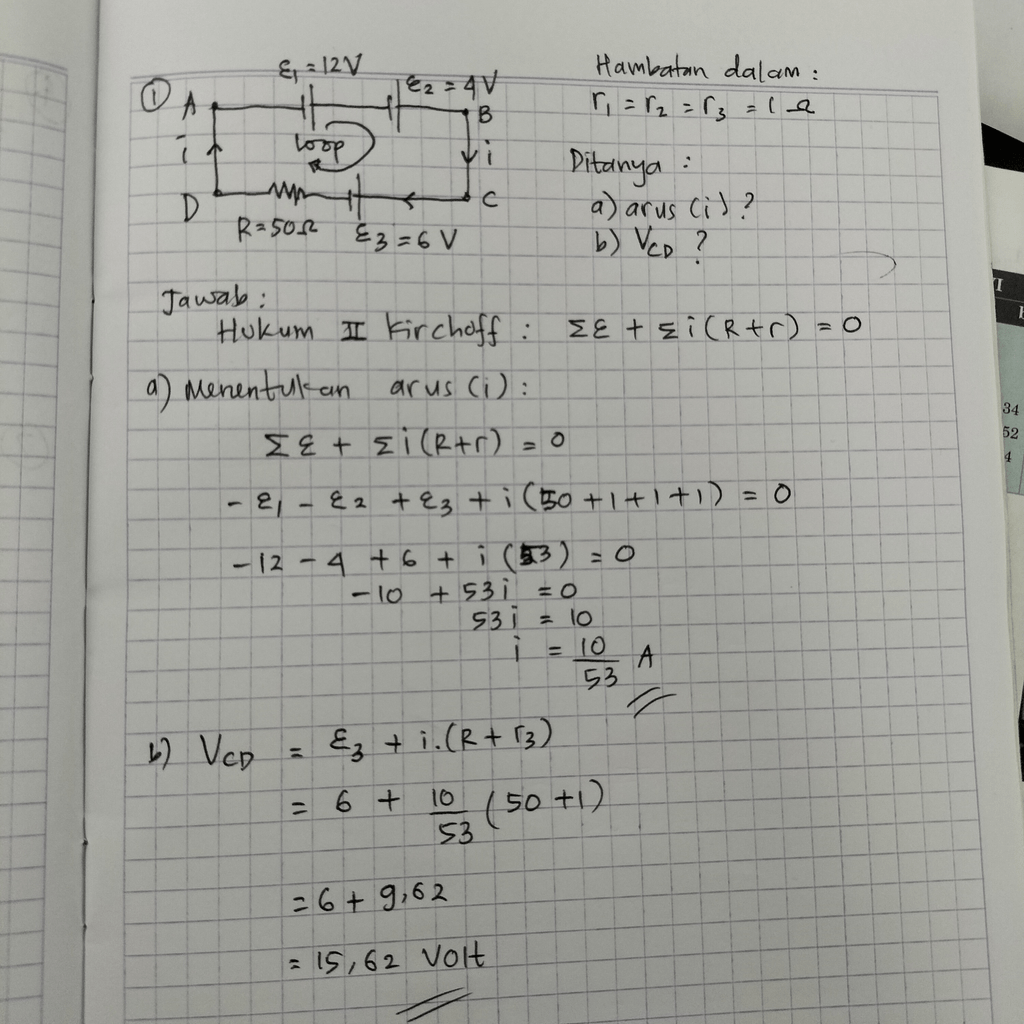 ① A ε₁ = 12V ε₂ = 4V B
i loop i
D R = 50Ω ε₃ = 6 V C
Hambatan dalam :
r₁ = r₂ = r₃ = 1 Ω
Ditanya :
a) arus (i) ?
b) V_CD ?
Jawab :
Hukum II Kirchoff : Σε + Σi(R+r) = 0
a) Menentukan arus (i) :
Σε + Σi(R+r) = 0
-ε₁ - ε₂ + ε₃ + i(50+1+1+1) = 0
-12 - 4 + 6 + i(53) = 0
-10 + 53i = 0
53i = 10
i = 10/53 A
b) V_CD = ε₃ + i.(R + r₃)
= 6 + 10/53 (50 + 1)
= 6 + 9,62
= 15,62 Volt
34
52
4